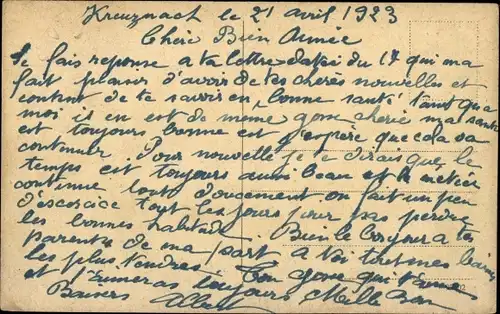 Kreuznach le 21 avril 1923
Chérie Bien Aimée
Je fais réponse a ta lettre datée du 17 qui ma
fait plaisir d'avoir de tes chères nouvelles et
content de te savoir en bonne santé tant qu'a
moi il en est de même gosse chérie ma santé
est toujours bonne est j'espère que cela va
continuer. Pour nouvelle je te dirais que le
temps est toujours aussi beau et le métier
continue tout doucement on fait un peu
d'éxercice tout les jours pour pas perdre
les bonnes habitude. Bien le bonjour a tes
parents de ma part a toi tout mes baisers
les plus tendres. Ton gosse qui t'aime
et t'aimeras toujours Mille Bon
Baisers Albert